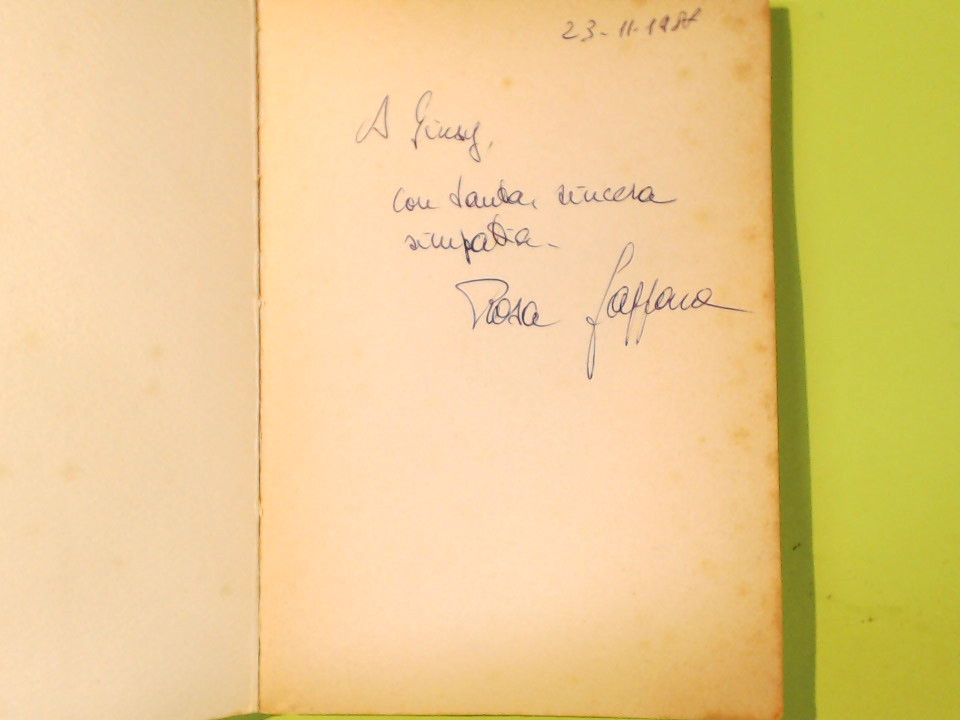 23-11-198
A Giusy,
con tanta, sincera
simpatia.
Rosa